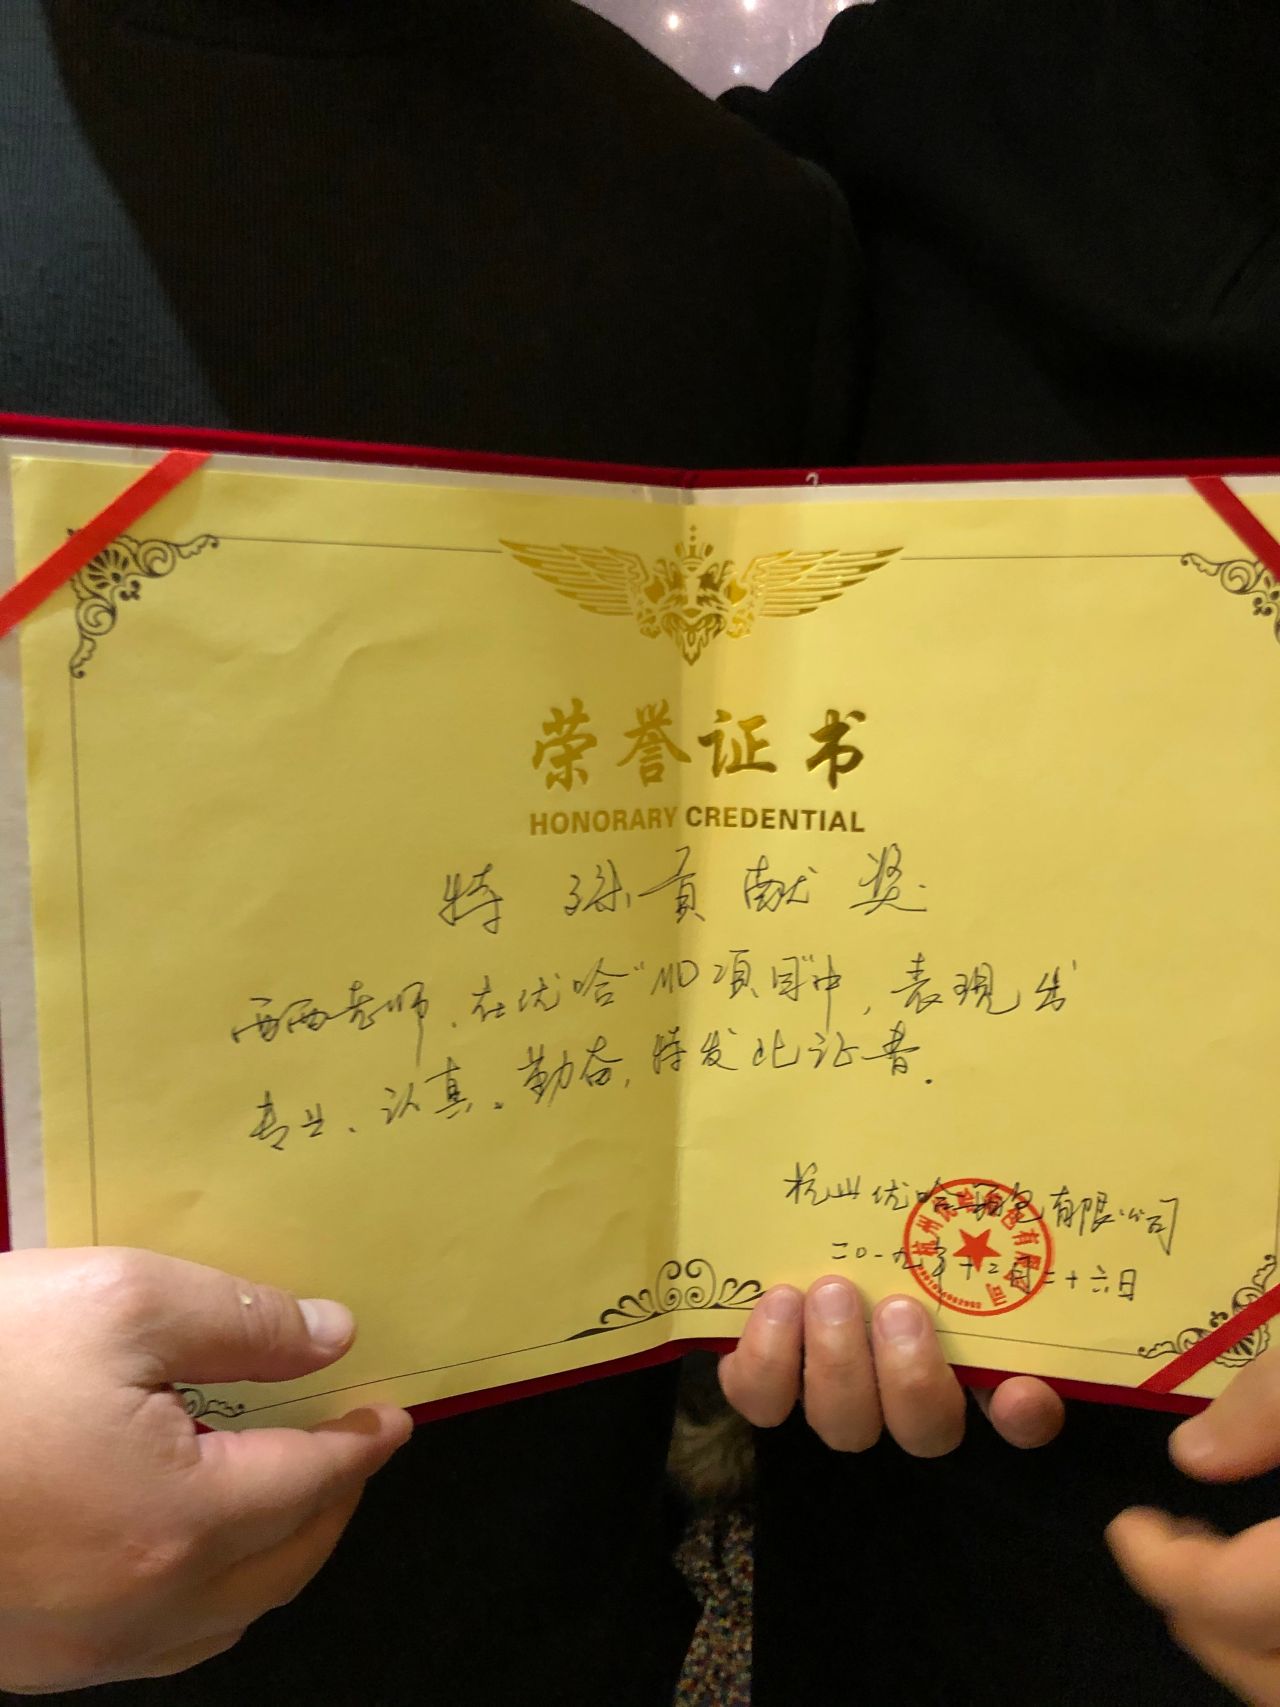 荣誉证书
HONORARY CREDENTIAL
特殊贡献奖.
西西老师,在优哈"MD项目"中,表现出
专业、认真、勤奋,特发此证书.
杭州优哈箱包有限公司
二0一九年十二月二十六日